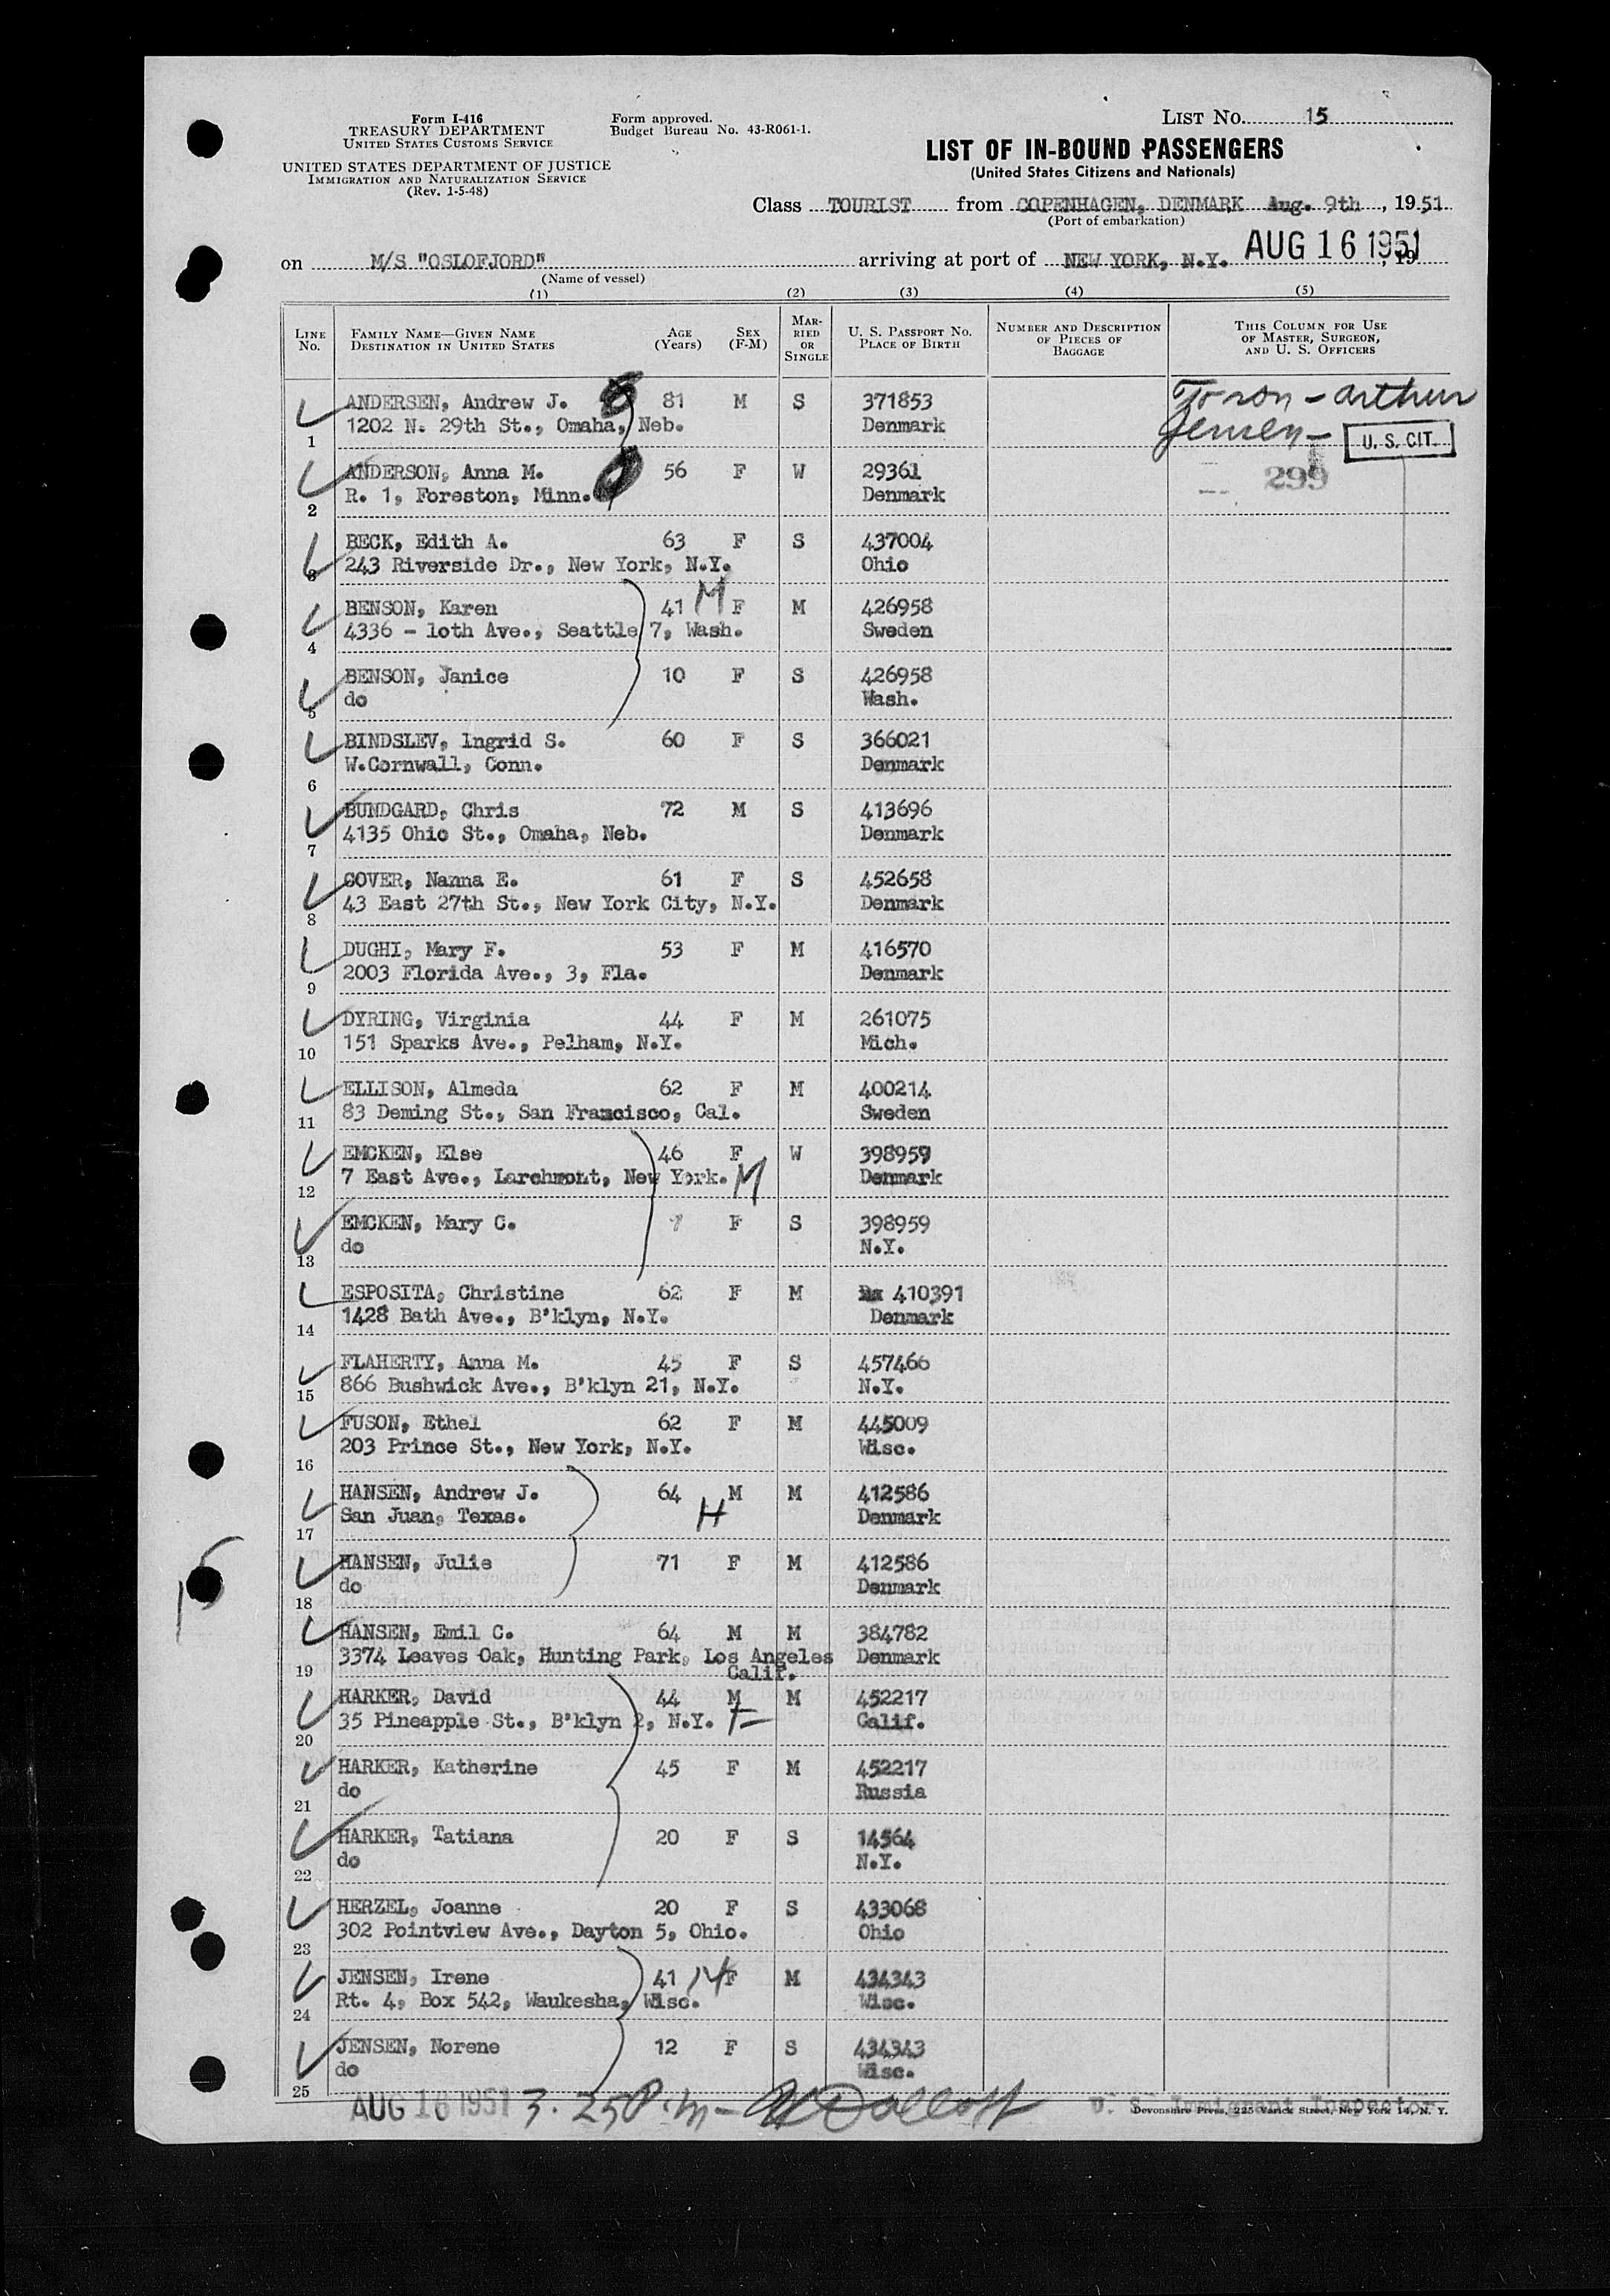 Form I-416
TREASURY DEPARTMENT
UNITED STATES CUSTOMS SERVICE
UNITED STATES DEPARTMENT OF JUSTICE
IMMIGRATION AND NATURALIZATION SERVICE
(Rev. 1-5-48)
Form approved.
Budget Bureau No. 43-R061-1.
LIST No. 15
LIST OF IN-BOUND PASSENGERS
(United States Citizens and Nationals)
Class TOURIST from COPENHAGEN, DENMARK Aug. 9th, 1951
(Port of embarkation)
on M/S "OSLOFJORD" arriving at port of NEW YORK, N.Y. AUG 16 1951, 19
(Name of vessel)
(1) (2) (3) (4) (5)
LINE No. FAMILY NAME—GIVEN NAME DESTINATION IN UNITED STATES AGE (Years) SEX (F-M) MARRIED OR SINGLE U. S. PASSPORT No. PLACE OF BIRTH NUMBER AND DESCRIPTION OF PIECES OF BAGGAGE THIS COLUMN FOR USE OF MASTER, SURGEON, AND U. S. OFFICERS
ANDERSEN, Andrew J. 81 M S 371853 To son - Arthur
1 1202 N. 29th St., Omaha, Neb. Denmark Jensen - U. S. CIT.
ANDERSON, Anna M. 56 F W 29361 299
2 R. 1, Foreston, Minn. Denmark
BECK, Edith A. 63 F S 437004
3 243 Riverside Dr., New York, N.Y. Ohio
BENSON, Karen 41 M F M 426958
4 4336 - 10th Ave., Seattle 7, Wash. Sweden
BENSON, Janice 10 F S 426958
5 do Wash.
BINDSLEV, Ingrid S. 60 F S 366021
6 W.Cornwall, Conn. Denmark
BUNDGARD, Chris 72 M S 413696
7 4135 Ohio St., Omaha, Neb. Denmark
COVER, Nanna E. 61 F S 452658
8 43 East 27th St., New York City, N.Y. Denmark
DUGHI, Mary F. 53 F M 416570
9 2003 Florida Ave., 3, Fla. Denmark
DYRING, Virginia 44 F M 261075
10 151 Sparks Ave., Pelham, N.Y. Mich.
ELLISON, Almeda 62 F M 400214
11 83 Deming St., San Francisco, Cal. Sweden
EMCKEN, Else 46 F W 398959
12 7 East Ave., Larchmont, New York. M Denmark
EMCKEN, Mary C. 7 F S 398959
13 do N.Y.
ESPOSITA, Christine 62 F M 410391
14 1428 Bath Ave., B'klyn, N.Y. Denmark
FLAHERTY, Anna M. 45 F S 457466
15 866 Bushwick Ave., B'klyn 21, N.Y. N.Y.
FUSON, Ethel 62 F M 445009
16 203 Prince St., New York, N.Y. Wisc.
HANSEN, Andrew J. 64 M M 412586
17 San Juan, Texas. H Denmark
HANSEN, Julie 71 F M 412586
18 do Denmark
15
HANSEN, Emil C. 64 M M 384782
19 3374 Leaves Oak, Hunting Park, Los Angeles Calif. Denmark
HARKER, David 44 M M 452217
20 35 Pineapple St., B'klyn 2, N.Y. F Calif.
HARKER, Katherine 45 F M 452217
21 do Russia
HARKER, Tatiana 20 F S 14564
22 do N.Y.
HERZEL, Joanne 20 F S 433068
23 302 Pointview Ave., Dayton 5, Ohio. Ohio
JENSEN, Irene 41 M F M 434343
24 Rt. 4, Box 542, Waukesha, Wisc. Wisc.
JENSEN, Norene 12 F S 434343
25 do Wisc.
AUG 16 1951 3.25 P.m - U. S. Immigrant Inspector
Devonshire Press, 225 Varick Street, New York 14, N. Y.